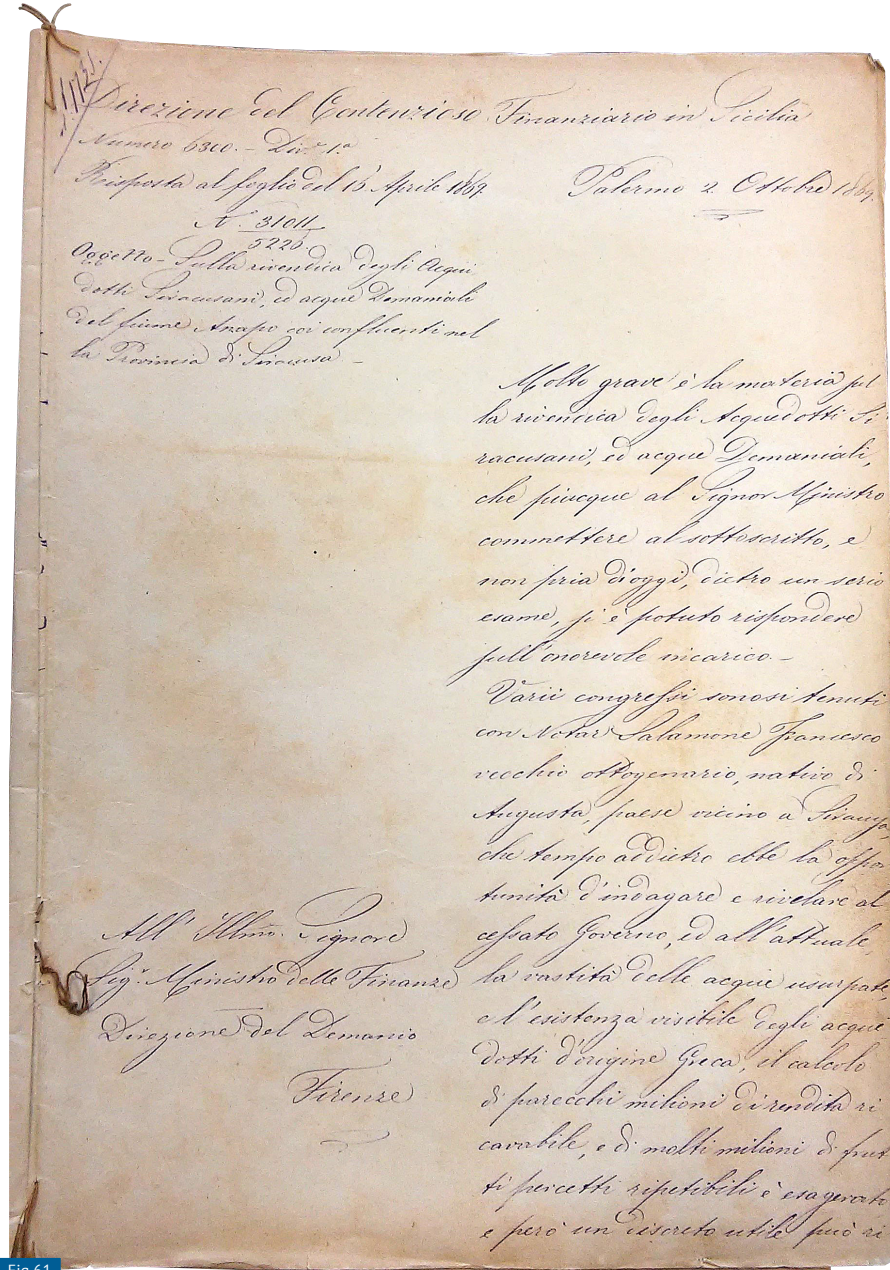 Direzione del Contenzioso Finanziario in Sicilia
Numero 6300. - Div.e 1.a
Risposta al foglio del 15 Aprile 1869
Palermo 2 Ottobre 1869.
N.° 31011
5220.
Oggetto - Sulla rivendica degli Acqui
dotti Siracusani, ed acque Demaniali
del fiume Anapo coi confluenti nel
la Provincia di Siracusa -
Molto grave è la materia sul
la rivendica degli Acquedotti Si
racusani, ed acque Demaniali,
che piacque al Signor Ministro
commettere al sottoscritto, e
non pria d'oggi, dietro un serio
esame, si è potuto rispondere
sull'onorevole incarico. -
Varii congressi sonosi tenuti
con Notar Salamone Francesco
vecchio ottogenario, nativo di
Augusta, paese vicino a Siracusa,
che tempo addietro ebbe la oppor
tunità d'indagare e rivelare al
cessato Governo, ed all'attuale,
la vastità delle acque usurpate,
e l'esistenza visibile degli acque
dotti d'origine Greca, il calcolo
di parecchi milioni di rendita ri
cavabile, e di molti milioni di frut
ti percetti ripetibili è esagerato
e però un discreto utile può ri
All' Illmo. Signore
Sig.r Ministro delle Finanze
Direzione del Demanio
Firenze
Fig 61